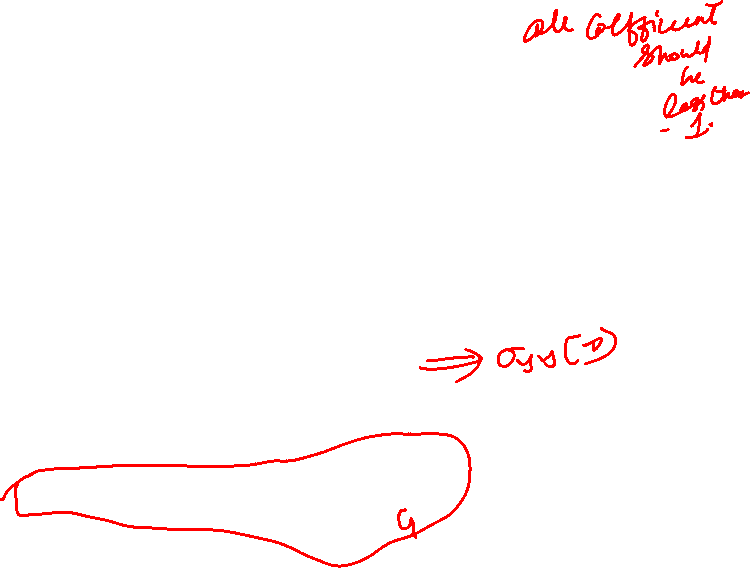 all Coefficient
should
be
less than
- 1.
⇒ σss(D)
G